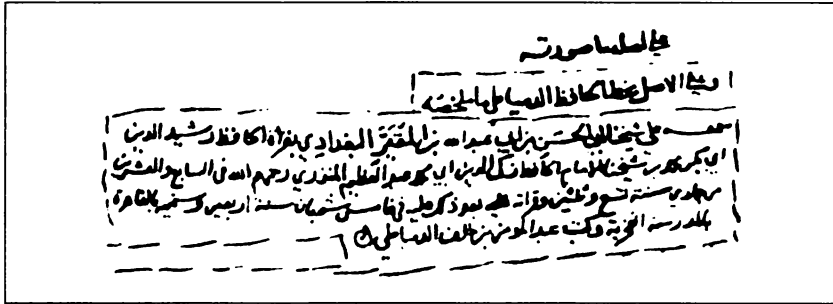 على أصلها ما صورته
وعلى الأصل بخط الحافظ الدمياطي ما ملخصه
سمعه على شيخنا أبي الحسن بن أبي عبد الله بن المقير البغدادي بقراءة الحافظ رشيد الدين
أبي بكر محمد بن شيخنا الإمام الحافظ زكي الدين أبي محمد عبد العظيم المنذري رحمهم الله في السابع والعشرين
من جمادى سنة تسع وثلثين وقراته عليه بعد ذلك في خامس شعبان سنة أربعين وستمية بالقاهرة
بالمدرسة وكتب عبد المؤمن بن خلف الدمياطي